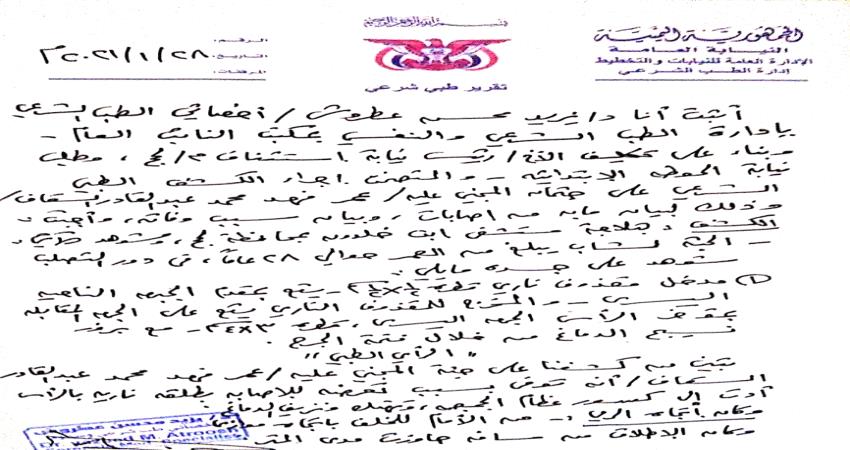 بسم الله الرحمن الرحيم
الجمهورية اليمنية
النيابة العامة
الإدارة العامة للنيابات والتخطيط
إدارة الطب الشرعي
تقرير طبي شرعي
الرقم:
التاريخ: ٢٠٢١/١/٢٨م
المرفقات:
أثبت أنا د/ محسن / أخصائي الطب الشرعي
بإدارة الطب الشرعي والنفسي بمكتب النائب العام -
وبناء على تكليف الأخ/ رئيس نيابة استئناف م/ لحج، وطلب
نيابة الابتدائية - والمتضمن إجراء الكشف الطبي
الشرعي على جثمان المجني عليه/ عمر فهد محمد عبدالقادر السقاف/
وذلك لبيان ما به من اصابات، وبيان سبب وفاته، وأجريت
الكشف مستشفى ابن خلدون بمحافظة لحج، وشوهد
- الجثة لشاب يبلغ من العمر حوالي ٢٨ عاماً، في دور التصلب
شوهد على جسده مايلي:
١) مدخل مقذوف ناري يقع بمقدم الجبهة الناحية
اليسرى - للمقذوف الناري يقع على الجهة المقابلة
الرأس الجهة اليسرى، ٣x٤سم - مع بروز
نسيج الدماغ من خلال فتحة الجرح.
"الرأي الطبي"
تبين من كشفنا على جثة المجني عليه/ عمر فهد محمد عبدالقادر
السقاف/ أنه توفى بسبب تعرضه للإصابة بطلقة نارية بالرأس
أدت إلى كسور عظام الجمجمة، وتهتك ونزيف الدماغ
وكان اتجاه الرمي :- من الأمام للخلف باتجاه
وكان الاطلاق من مسافة جاوزت مدى